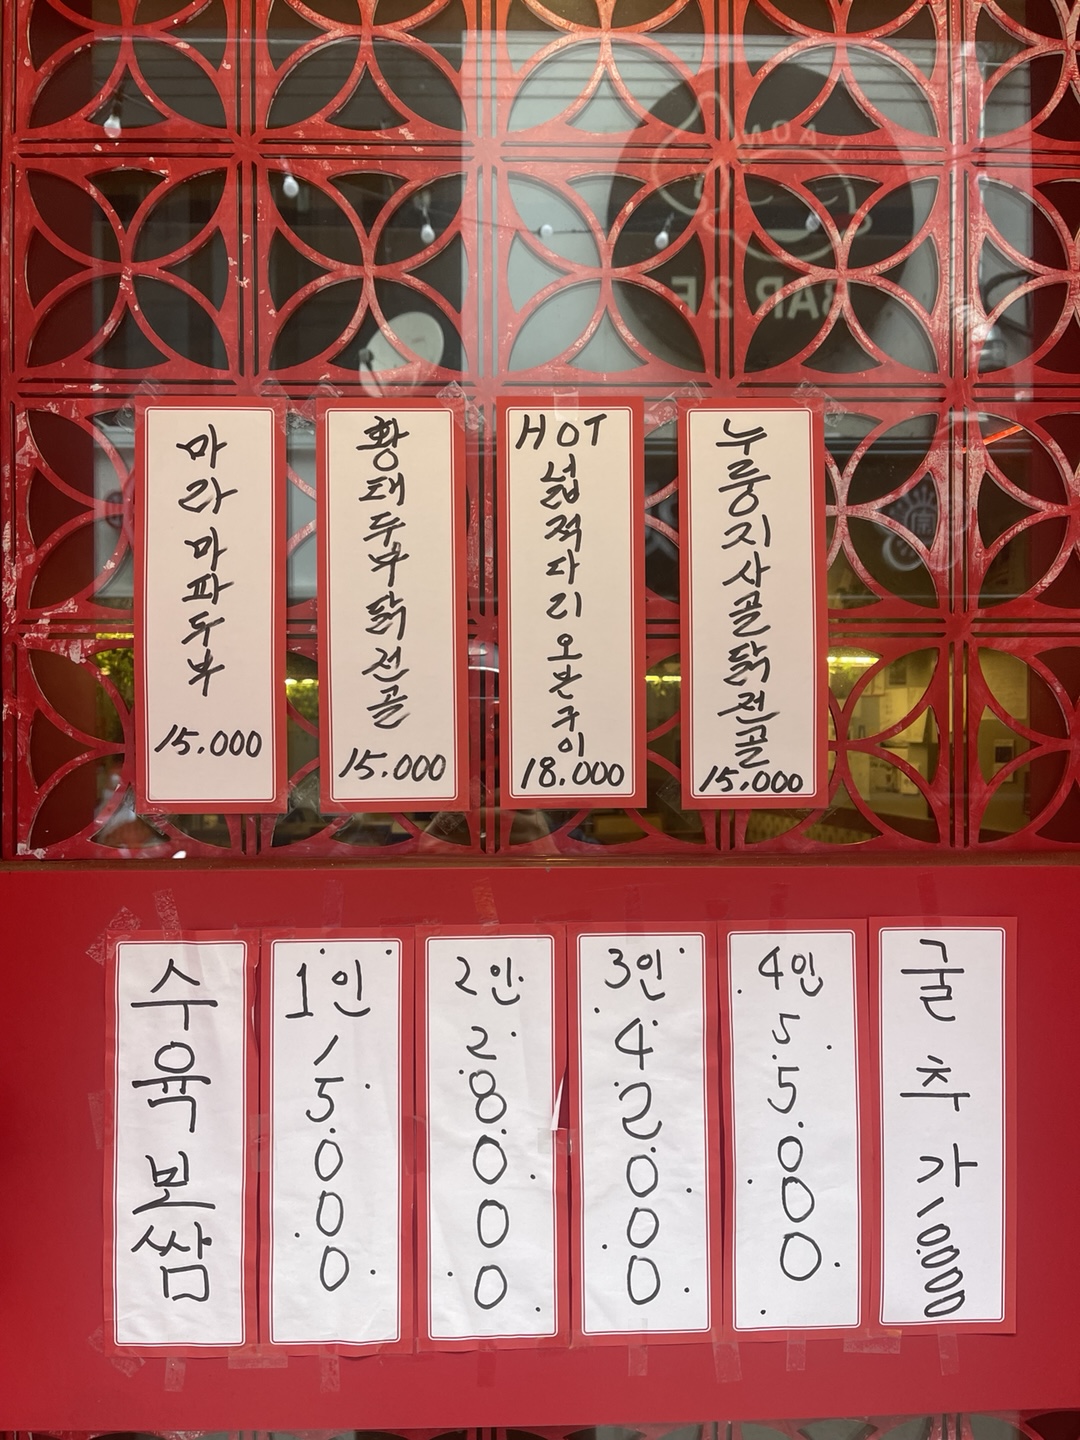 마라마파두부
15.000
황태두부닭전골
15.000
HOT
넓적다리오븐구이
18.000
누룽지사골닭전골
15.000
수육보쌈
1인
15.000
2인
28000
3인
42000
4인
55000
굴추가
10.000
BAR 2F